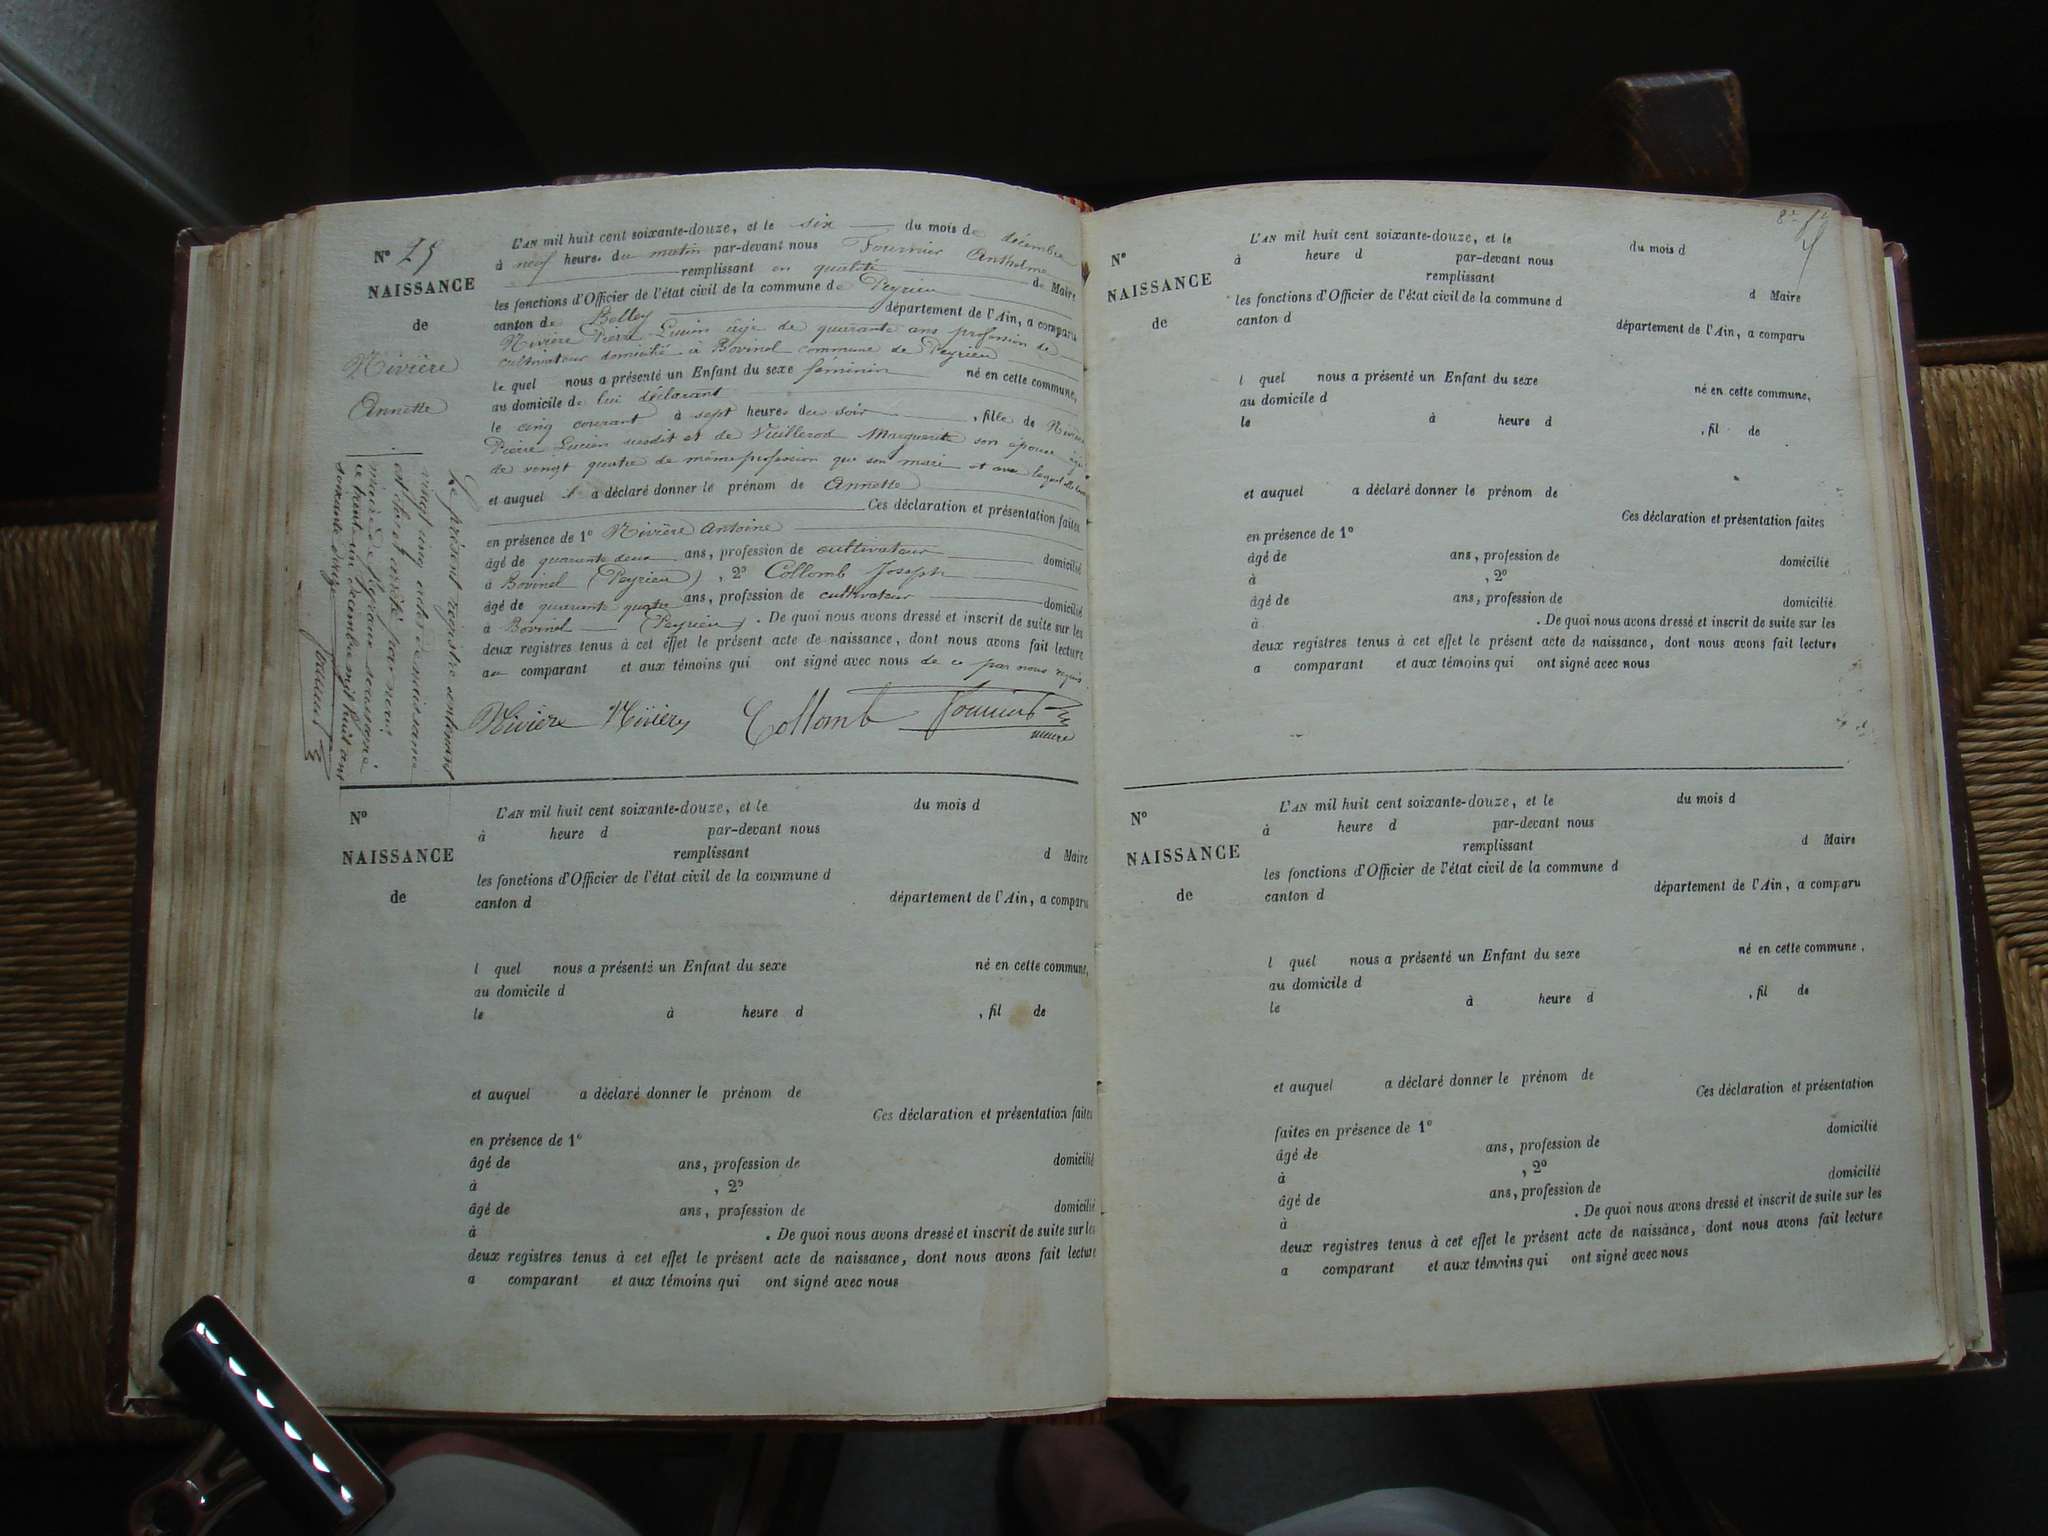 N° 25
NAISSANCE
de
Rivière
Annette
L'AN mil huit cent soixante-douze, et le six du mois de décembre
à neuf heures du matin par-devant nous Fournier Anthelme
remplissant en qualité de Maire
les fonctions d'Officier de l'état civil de la commune de Peyrieu
canton de Belley département de l'Ain, a comparu
Rivière Pierre Lucien âgé de quarante ans profession de
cultivateur domicilié à Bovinel commune de Peyrieu
le quel nous a présenté un Enfant du sexe féminin né en cette commune,
au domicile de lui déclarant
le cinq courant à sept heures du soir , fille de Rivière
Pierre Lucien susdit et de Vuillerod Marguerite son épouse âgée
de vengt quatre de même profession que son mari et avec lequel elle
et auquel il a déclaré donner le prénom de Annette
Ces déclaration et présentation faites
en présence de 1° Rivière Antoine
âgé de quarante deux ans, profession de cultivateur domicilié
à Bovinel (Peyrieu) , 2° Collomb Joseph
âgé de quarante quatre ans, profession de cultivateur domicilié
à Bovinel (Peyrieu) . De quoi nous avons dressé et inscrit de suite sur les
deux registres tenus à cet effet le présent acte de naissance, dont nous avons fait lecture
au comparant et aux témoins qui ont signé avec nous de ce par nous requis.
Rivière Rivière Collomb Fournier
maire
Le présent registre contenant
vingt cinq actes de naissance
est clos et arrêté par nous
maire de Peyrieu soussigné
le trente un décembre mil huit cent
soixante douze
N°
NAISSANCE
de
L'AN mil huit cent soixante-douze, et le du mois d
à heure d par-devant nous
remplissant d Maire
les fonctions d'Officier de l'état civil de la commune d
canton d département de l'Ain, a comparu
l quel nous a présenté un Enfant du sexe né en cette commune,
au domicile d
le à heure d , fil de
et auquel a déclaré donner le prénom de
Ces déclaration et présentation faites
en présence de 1°
âgé de ans, profession de domicilié
à , 2°
âgé de ans, profession de domicilié
à . De quoi nous avons dressé et inscrit de suite sur les
deux registres tenus à cet effet le présent acte de naissance, dont nous avons fait lecture
a comparant et aux témoins qui ont signé avec nous
N°
NAISSANCE
de
L'AN mil huit cent soixante-douze, et le du mois d
à heure d par-devant nous
remplissant d Maire
les fonctions d'Officier de l'état civil de la commune d
canton d département de l'Ain, a comparu
l quel nous a présenté un Enfant du sexe né en cette commune,
au domicile d
le à heure d , fil de
et auquel a déclaré donner le prénom de
Ces déclaration et présentation faites
en présence de 1°
âgé de ans, profession de domicilié
à , 2°
âgé de ans, profession de domicilié
à . De quoi nous avons dressé et inscrit de suite sur les
deux registres tenus à cet effet le présent acte de naissance, dont nous avons fait lecture
a comparant et aux témoins qui ont signé avec nous
N°
NAISSANCE
de
L'AN mil huit cent soixante-douze, et le du mois d
à heure d par-devant nous
remplissant d Maire
les fonctions d'Officier de l'état civil de la commune d
canton d département de l'Ain, a comparu
l quel nous a présenté un Enfant du sexe né en cette commune,
au domicile d
le à heure d , fil de
et auquel a déclaré donner le prénom de
Ces déclaration et présentation
faites en présence de 1°
âgé de ans, profession de domicilié
à , 2°
âgé de ans, profession de domicilié
à . De quoi nous avons dressé et inscrit de suite sur les
deux registres tenus à cet effet le présent acte de naissance, dont nous avons fait lecture
a comparant et aux témoins qui ont signé avec nous